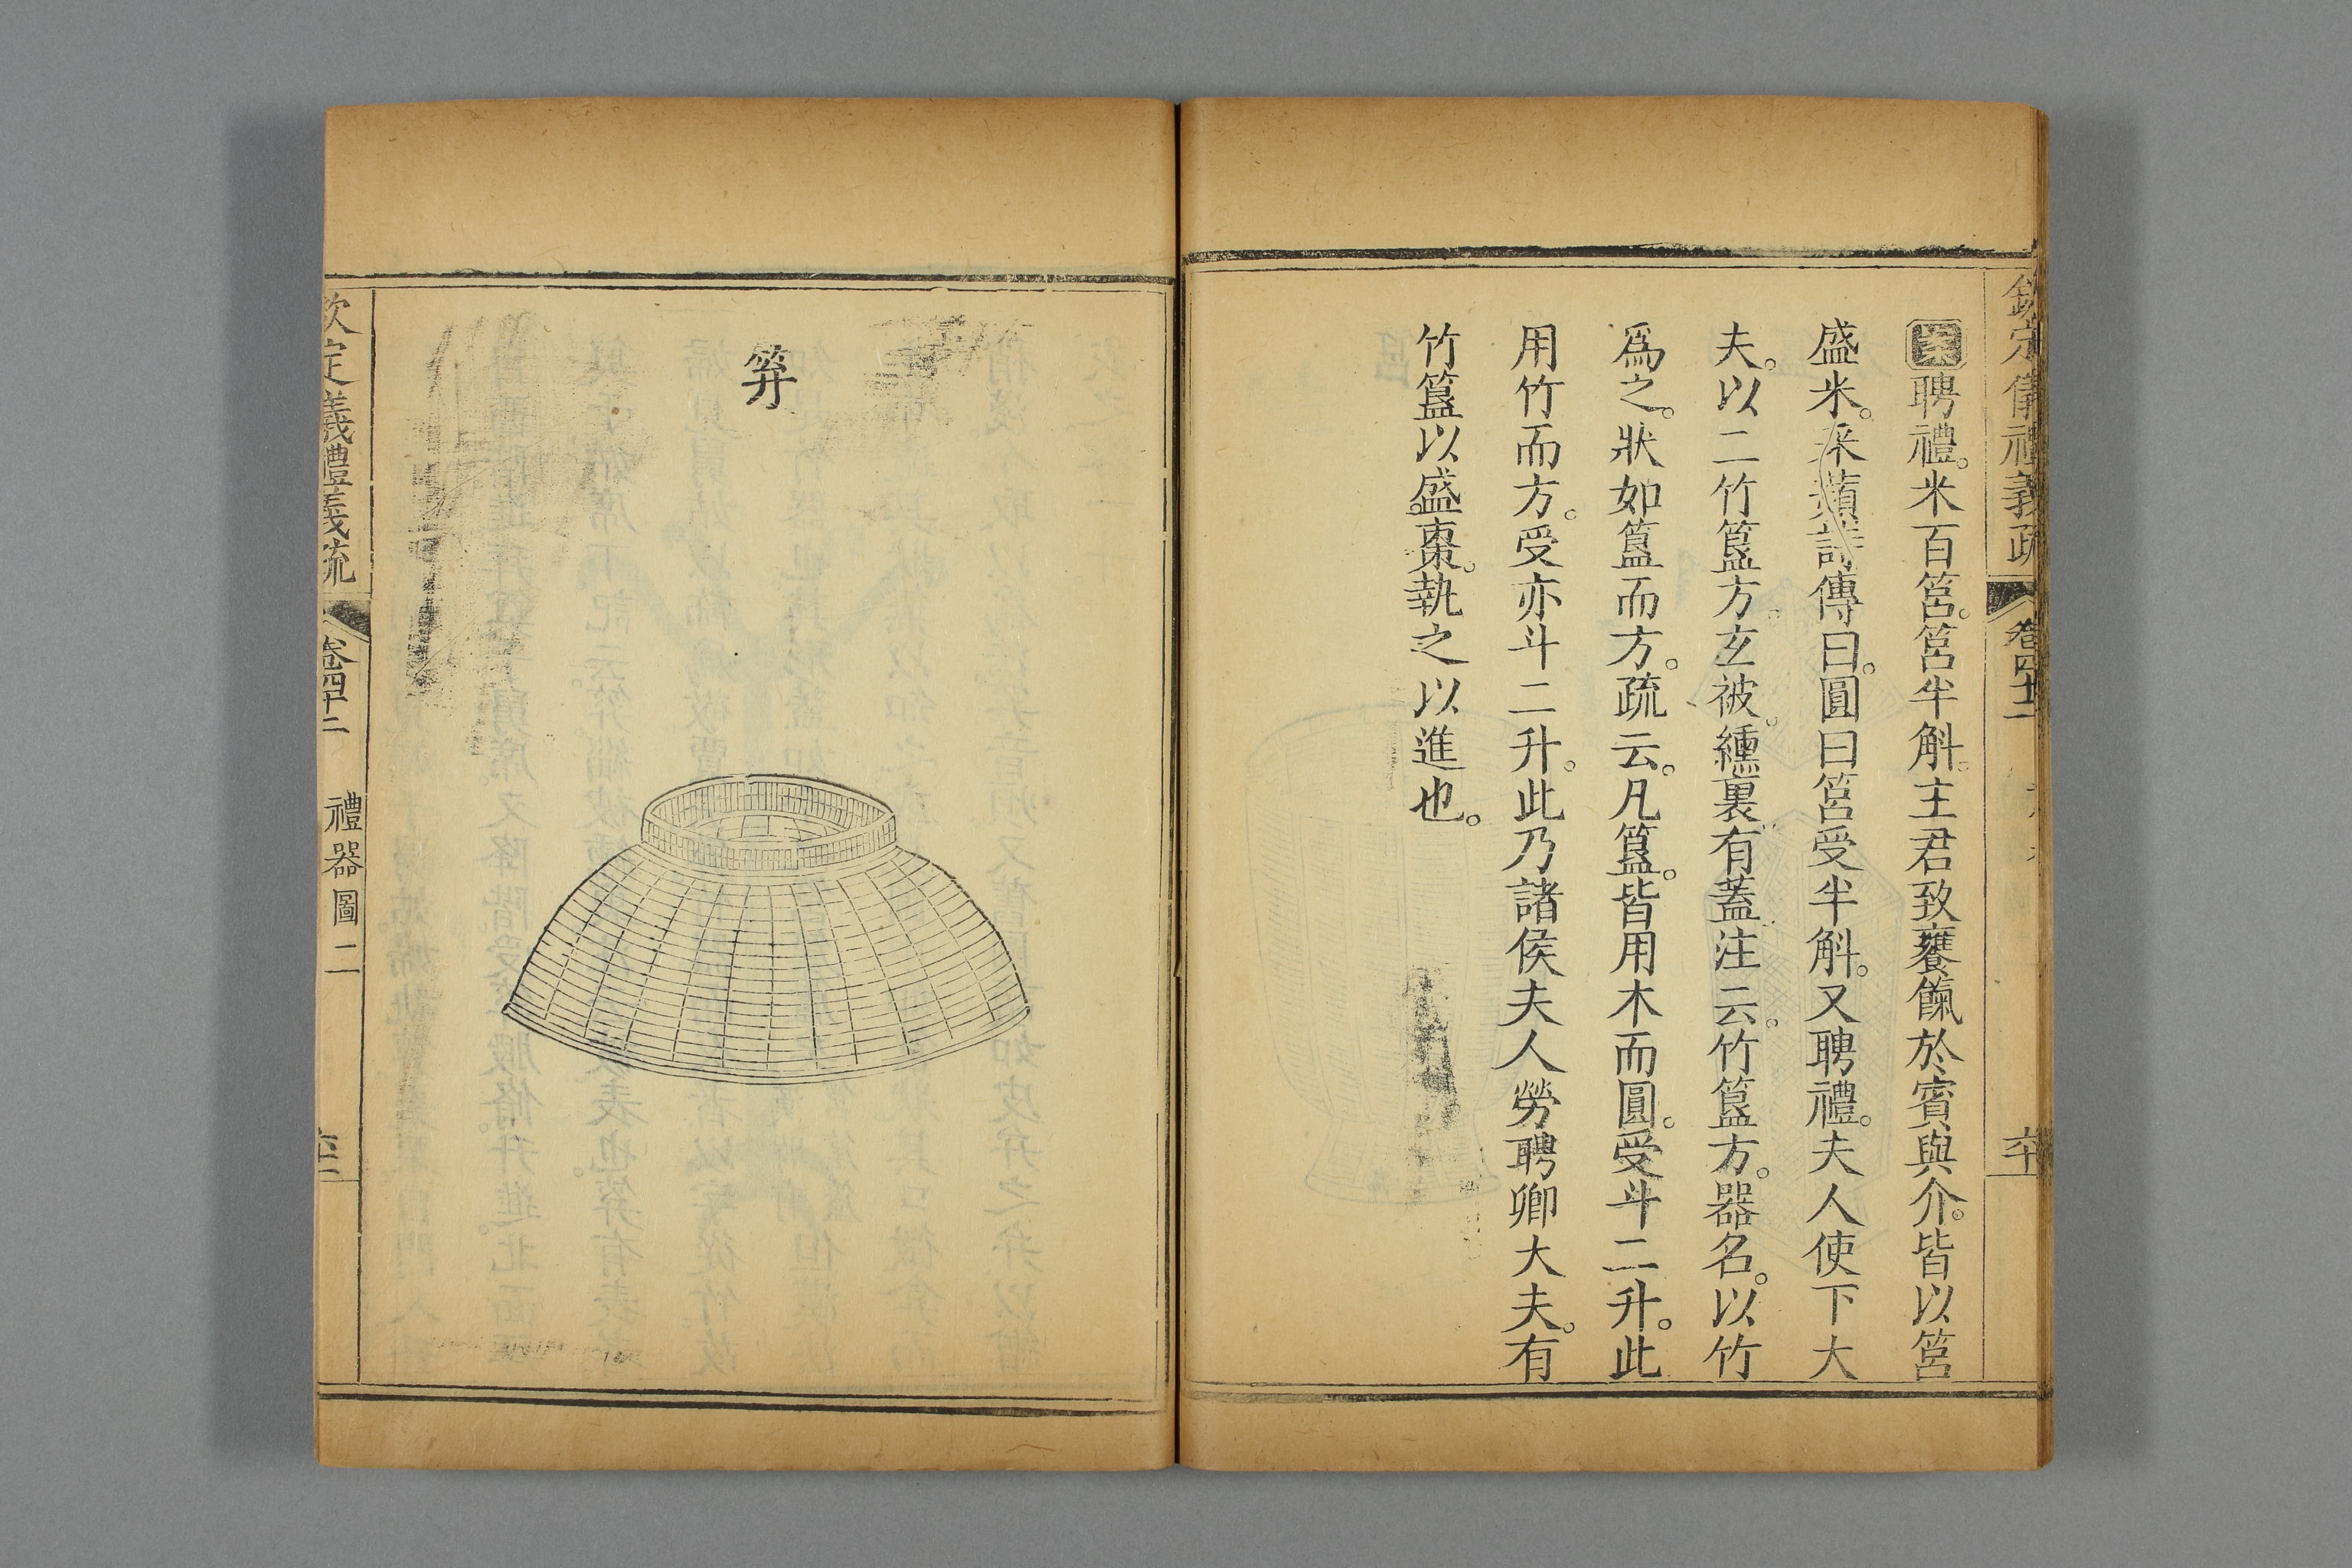 欽定儀禮義疏
卷四十二
六十
案聘禮。米百筥。筥半斛。主君致饔餼於賓與介。皆以筥
盛米。采蘋詩傳曰。圓曰筥受半斛。又聘禮。夫人使下大
夫。以二竹簋方。玄被。纁裏。有蓋。注云。竹簋方。器名。以竹
爲之。狀如簋而方。疏云。凡簋。皆用木而圓。受斗二升。此
用竹而方。受亦斗二升。此乃諸侯夫人勞聘卿大夫。有
竹簋以盛棗。執之以進也。
笲
欽定義禮義疏
卷四十二
禮器圖二
六十一